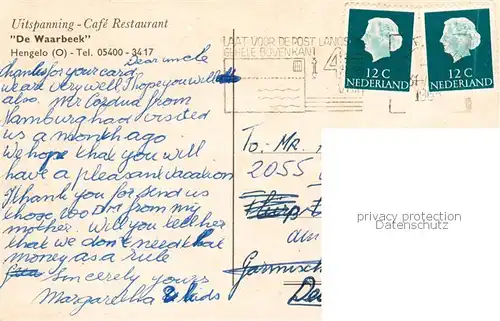 Uitspanning - Café Restaurant
"De Waarbeek"
Hengelo (O) - Tel. 05400 - 3417
Dear uncle
thanks for your card
we are very well I hope you will
also. Mr from
Hamburg had visited
us a month ago.
We hope that you will
have a pleasant vacation
Thank you for send us
those 100 DM from my
mother. Will you tell her
that we don't need that
money as a rule
Sincerely yours
Margaretha & kids
LAAT VOOR DE POST LANGS
GEHELE BOVENKANT
12 C
NEDERLAND
12 C
NEDERLAND
To: Mr.
2055
Garmisch
privacy protection
Datenschutz